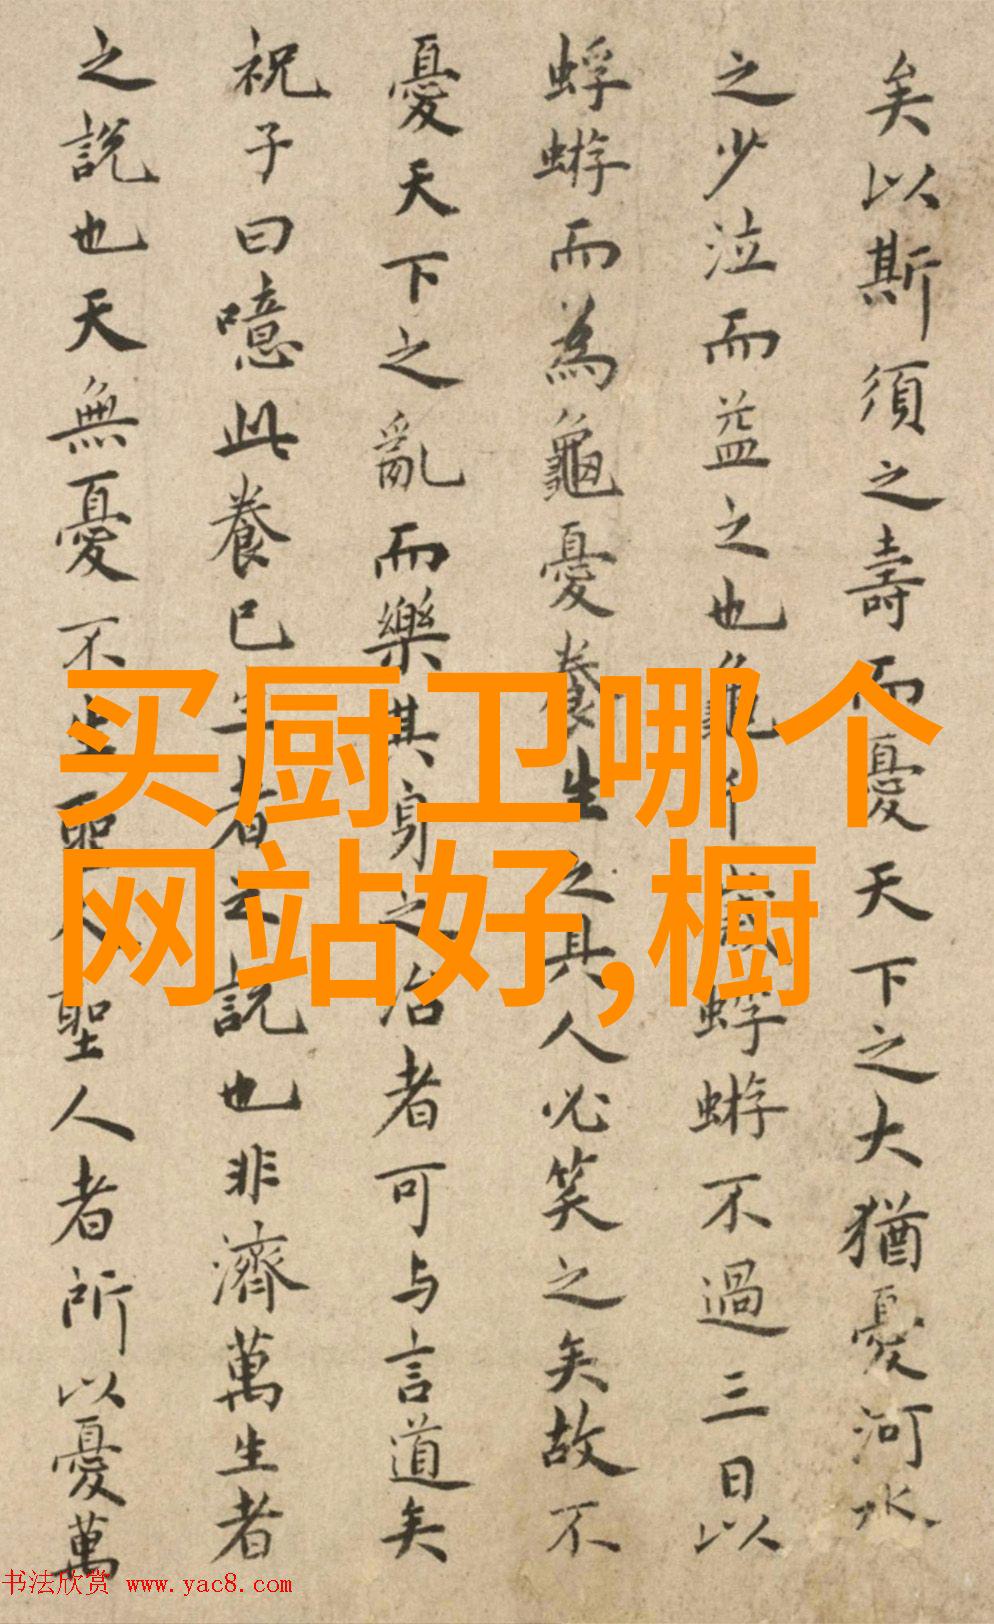 矣以斯須之壽而憂天下之大猶憂河水
之少泣而益之也龜千歲蜉蝣不過三日以
蜉蝣而為龜憂養生之具人必笑之矣故不
憂天下之亂而樂其身之治者可与言道矣
祝子曰噫此養己生者之説也非濟萬生者
之説也天無憂不生聖人聖人者所以憂萬
买厨卫哪个
网站好,橱
书法欣赏 www.yac8.com